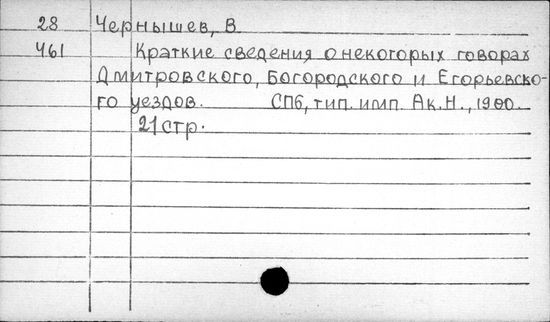 28 Чернышев, В
461 Краткие сведения о некоторых говорах
Дмитровского, Богородского и Егорьевско-
го уездов. СПб, тип. имп. Ак.Н., 1900.
21 стр.